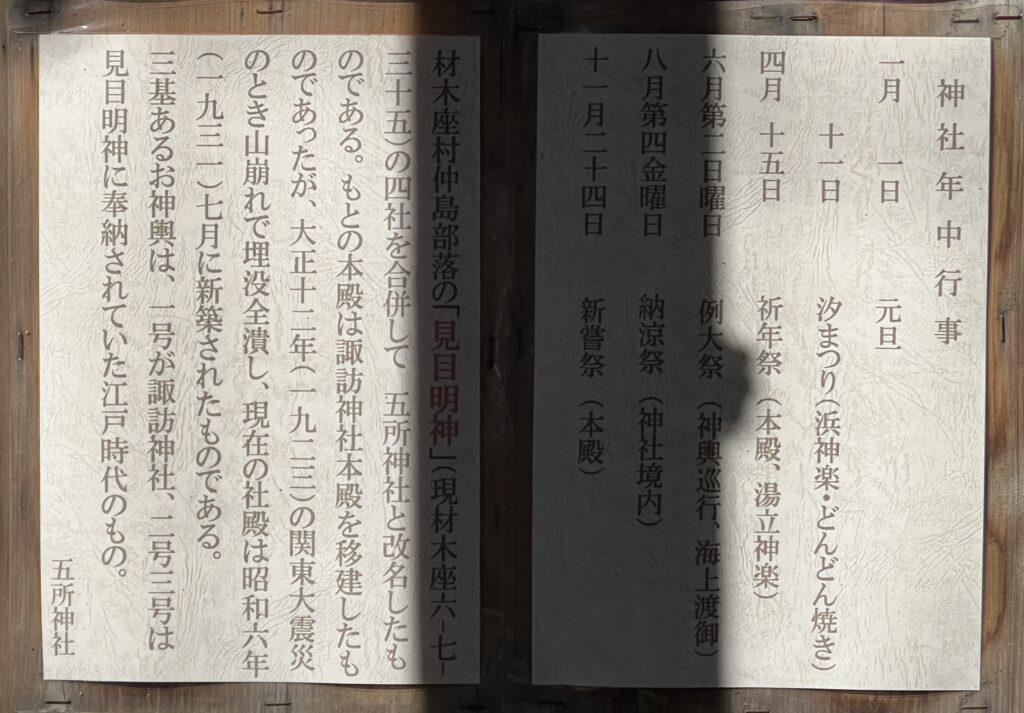 神社年中行事
一月　一日　元旦
十一日　汐まつり（浜神楽・どんどん焼き）
四月　十五日　祈年祭（本殿、湯立神楽）
六月第二日曜日　例大祭（神輿巡行、海上渡御）
八月第四金曜日　納涼祭（神社境内）
十一月二十四日　新嘗祭（本殿）
材木座村仲島部落の「見目明神」（現材木座六ー七ー
三十五）の四社を合併して　五所神社と改名したも
のである。もとの本殿は諏訪神社本殿を移建したも
のであったが、大正十二年（一九二三）の関東大震災
のとき山崩れで埋没全潰し、現在の社殿は昭和六年
（一九三一）七月に新築されたものである。
三基あるお神輿は、一号が諏訪神社、二号三号は
見目明神に奉納されていた江戸時代のもの。
五所神社